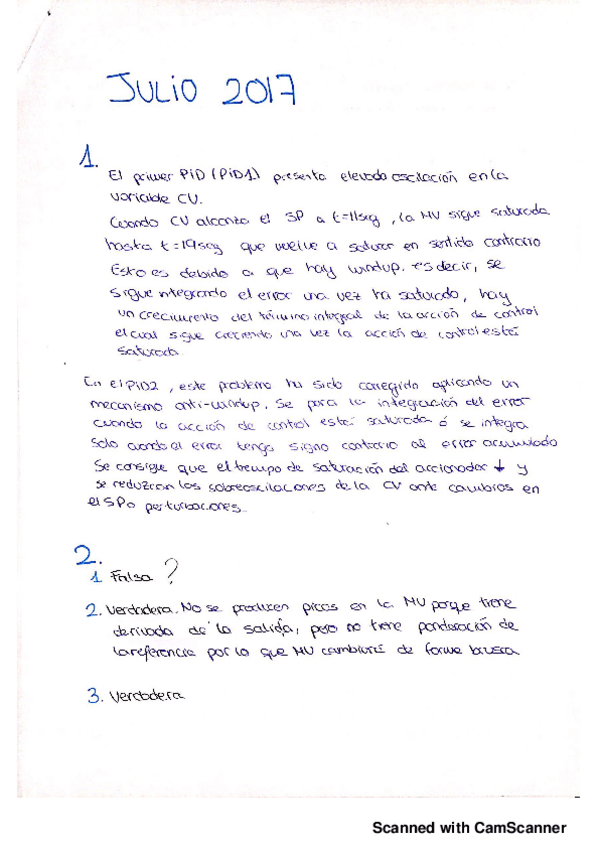 JULIO 2017
1.
El primer PID (PID1) presenta elevada oscilación en la
variable CV.
Cuando CV alcanza el SP a t=11seg, la MV sigue saturada
hasta t=19seg que vuelve a saturar en sentido contrario
Esto es debido a que hay windup. es decir, se
sigue integrando el error una vez ha saturado, hay
un crecimiento del término integral de la acción de control
el cual sigue creciendo una vez la acción de control está
saturada.
En el PID2, este problema ha sido corregido aplicando un
mecanismo anti-windup. Se para la integración del error
cuando la acción de control está saturada ó se integra
solo cuando el error tenga signo contrario al error acumulado
Se consigue que el tiempo de saturación del accionador ↓ y
se reduzcan las sobreoscilaciones de la CV ante cambios en
el SP o perturbaciones.
2.
1 Falsa ?
2. Verdadera. No se producen picos en la MV porque tiene
derivada de la salida, pero no tiene ponderación de
la referencia por lo que MV cambiará de forma brusca
3. Verdadera
Scanned with CamScanner